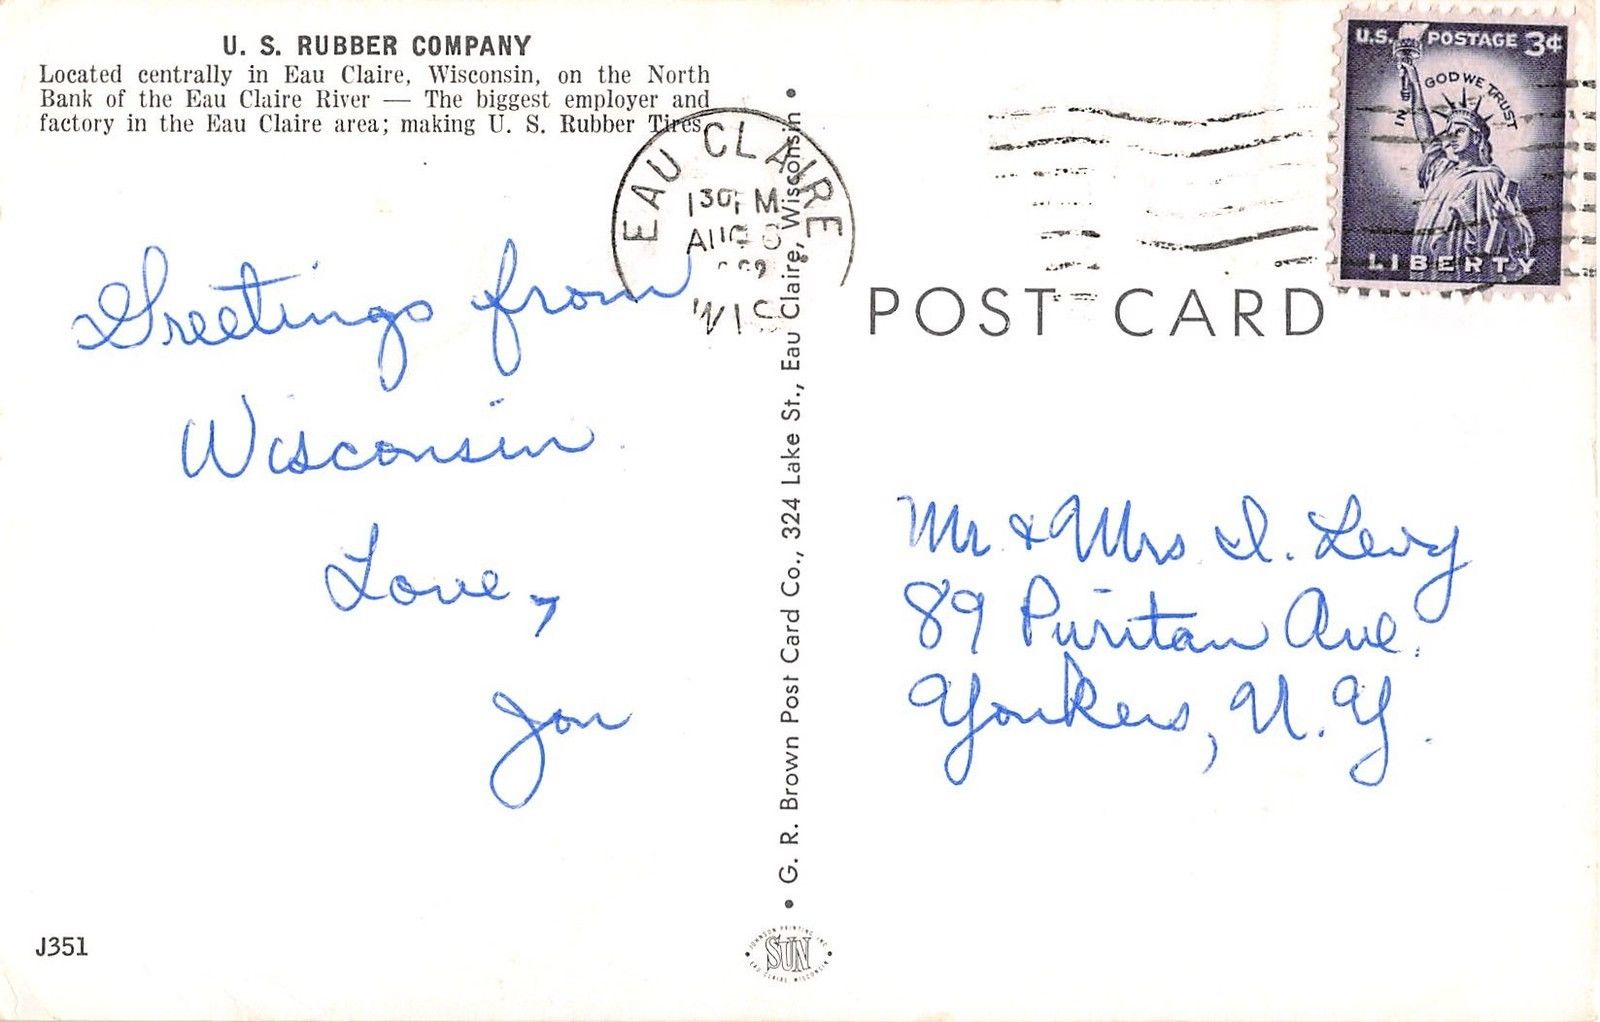 U. S. RUBBER COMPANY
Located centrally in Eau Claire, Wisconsin, on the North
Bank of the Eau Claire River — The biggest employer and
factory in the Eau Claire area; making U. S. Rubber Tires.
Greetings from
Wisconsin
Love,
Jon
J351
EAU CLAIRE
130 PM
AUG 8
WIS
• G. R. Brown Post Card Co., 324 Lake St., Eau Claire, Wisconsin •
JOHNSON PRINTING INC.
SUN
EAU CLAIRE WISCONSIN
U.S. POSTAGE 3¢
IN GOD WE TRUST
LIBERTY
POST CARD
Mr & Mrs I. Levy
89 Puritan Ave.
Yonkers, N. Y.